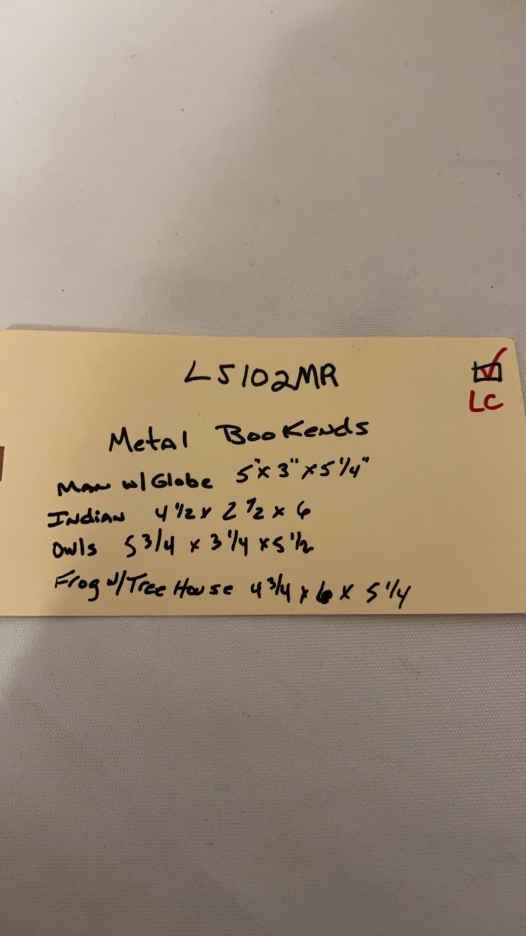 L5102MR
LC
Metal Bookends
Man w/ Globe 5" x 3" x 5 1/4"
Indian 4 1/2 x 2 1/2 x 6
Owls 5 3/4 x 3 1/4 x 5 1/2
Frog w/ Tree House 4 3/4 x 6 x 5 1/4